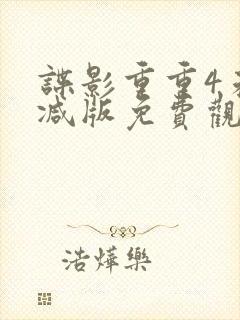 諜影重重4
減版免費觀
浩燁樂